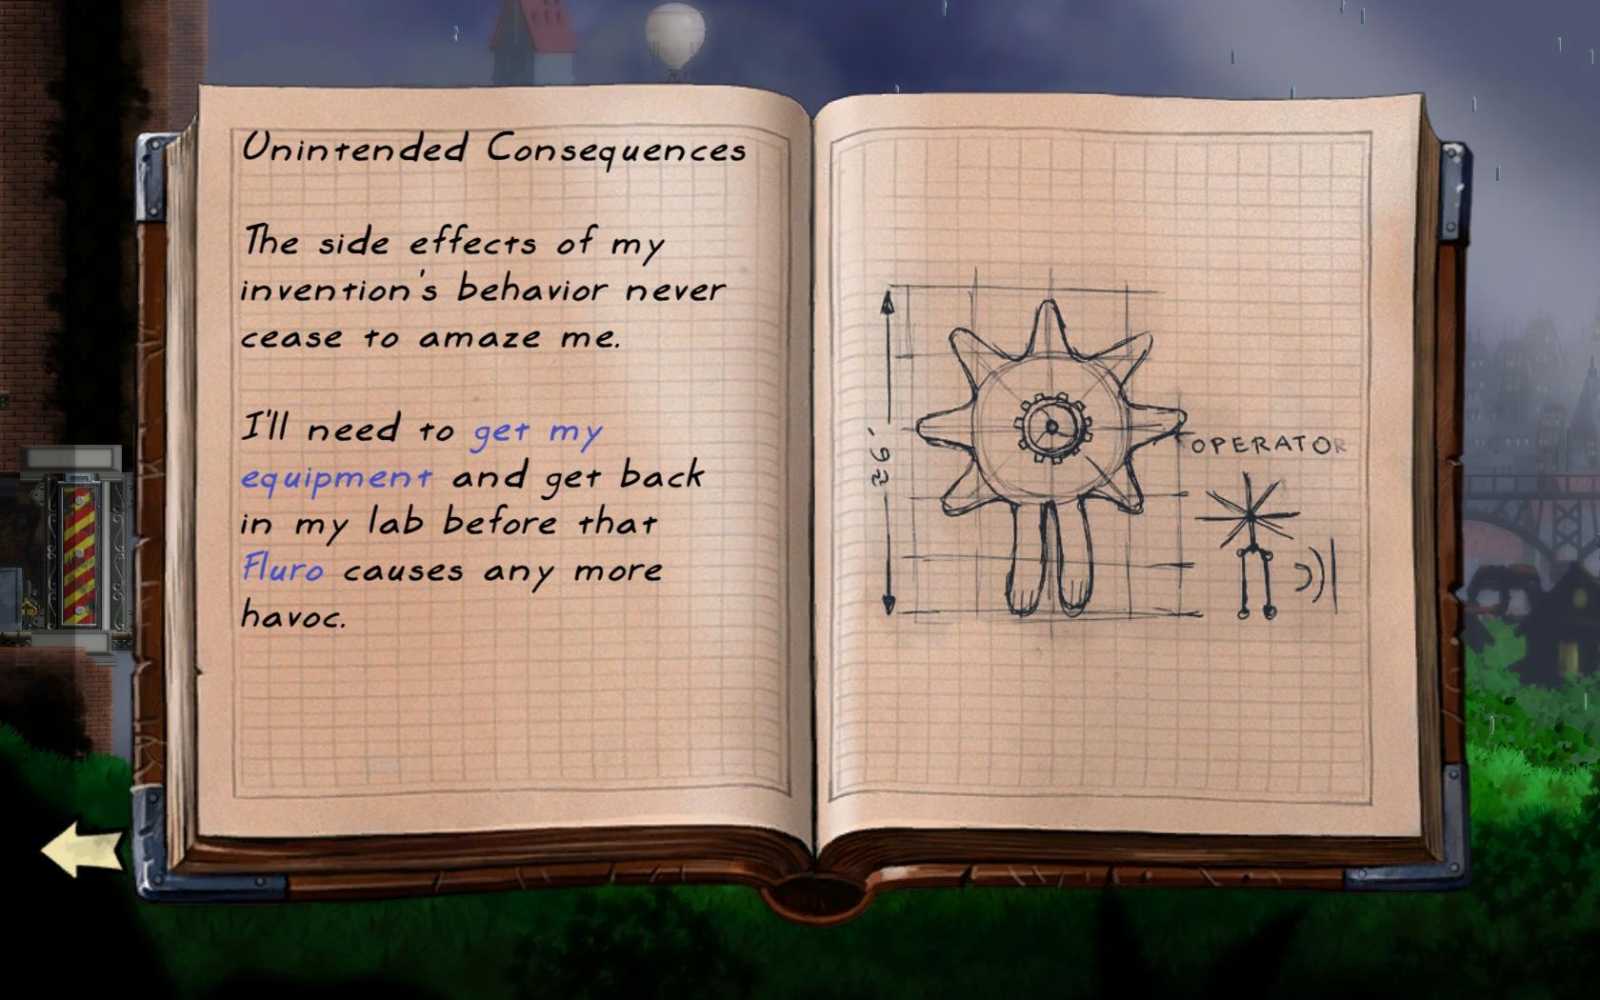 Unintended Consequences
The side effects of my
invention's behavior never
cease to amaze me.
I'll need to get my
equipment and get back
in my lab before that
Fluro causes any more
havoc.
OPERATOR